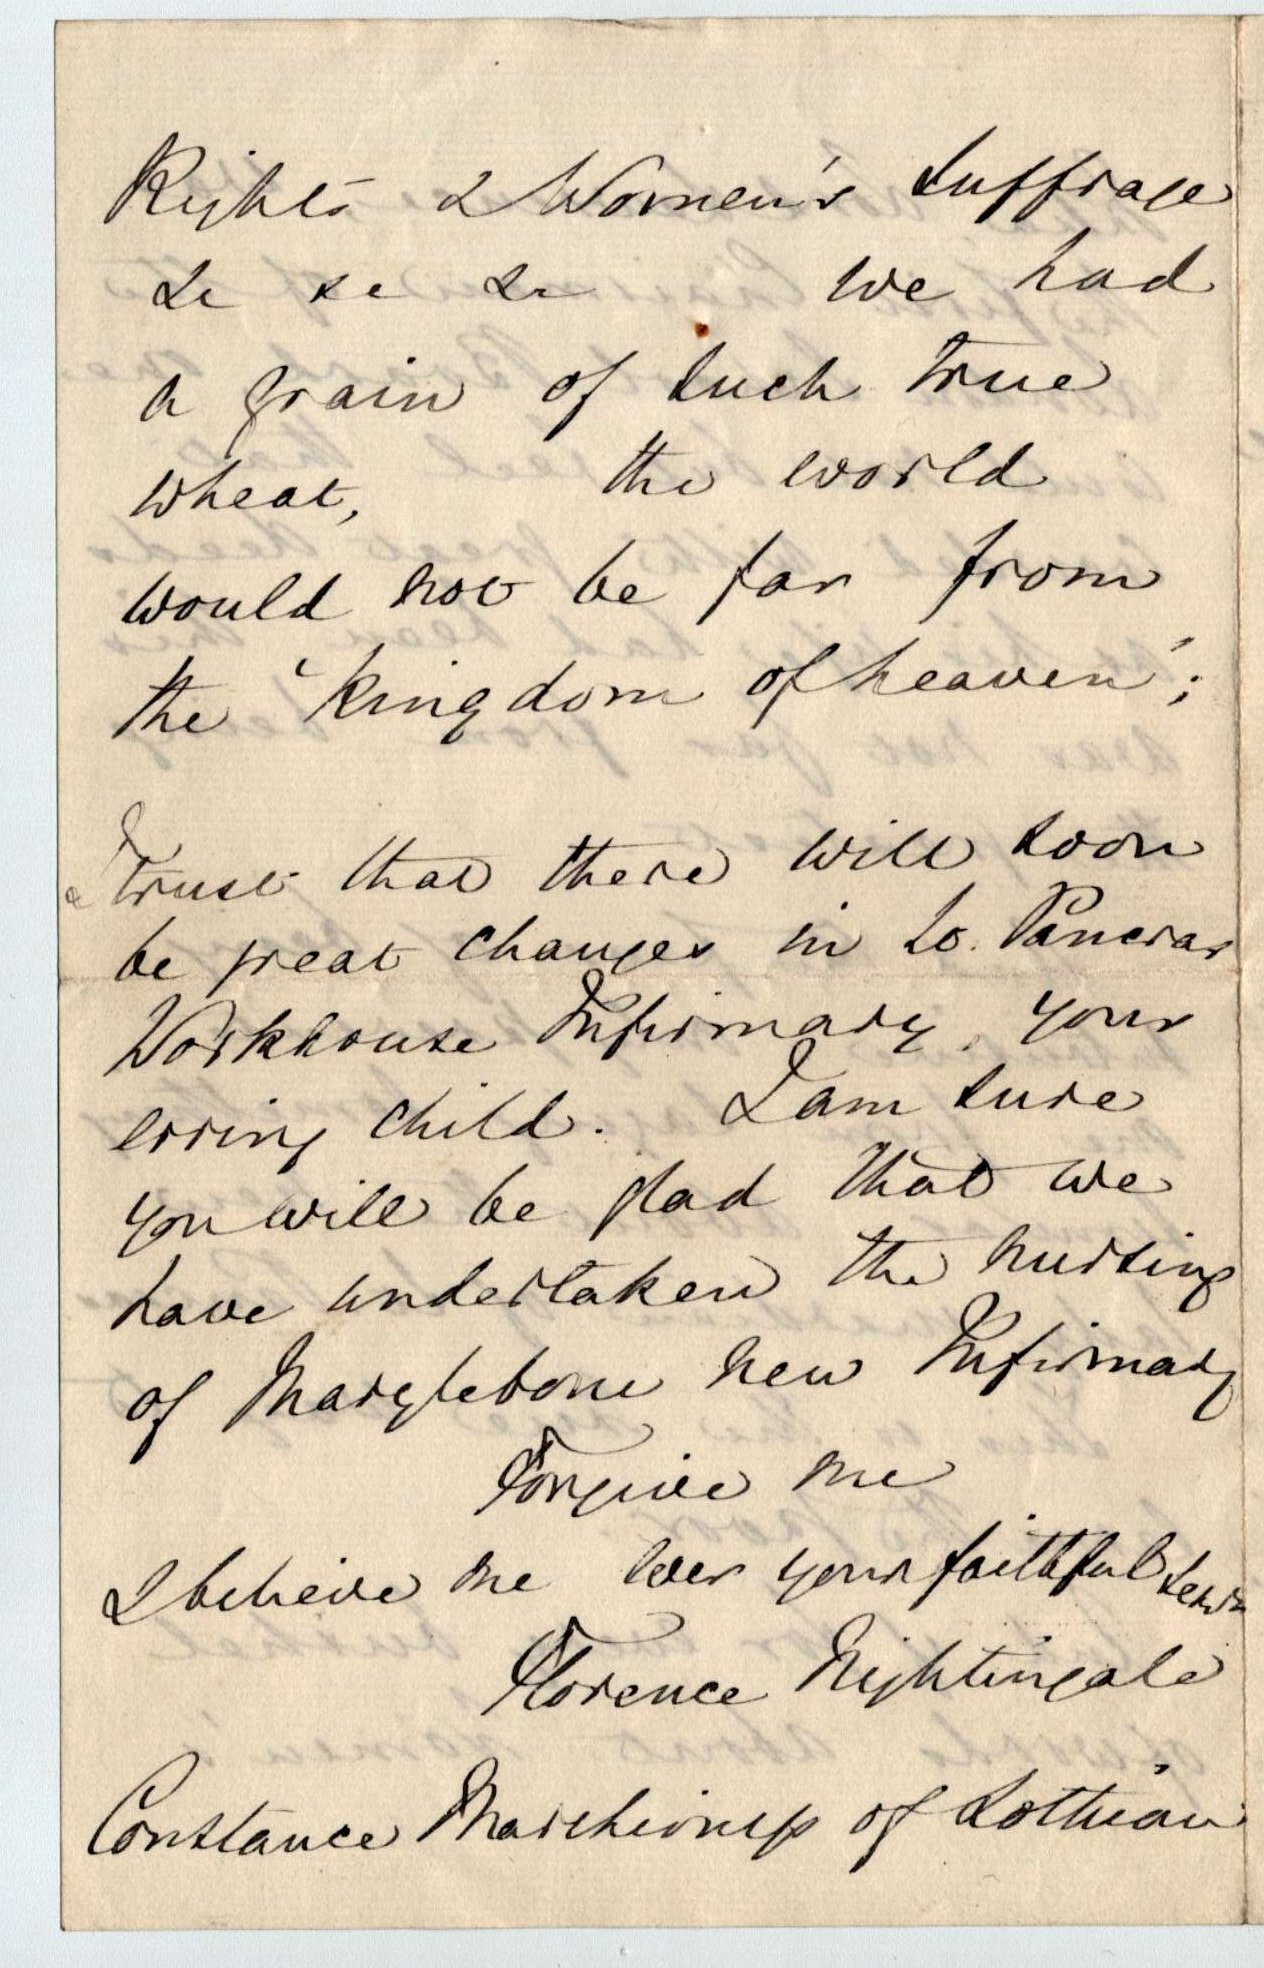 Rights & Women's Suffrage
&c &c &c we had
a grain of such true
wheat, the world
would not be far from
the 'kingdom of heaven';
I trust that there will soon
be great changes in St. Pancras
Workhouse Infirmary, your
erring child. I am sure
you will be glad that we
have undertaken the nursing
of Marylebone new Infirmary
Forgive me
& believe me ever your faithful servt
Florence Nightingale
Constance Marchioness of Lothian